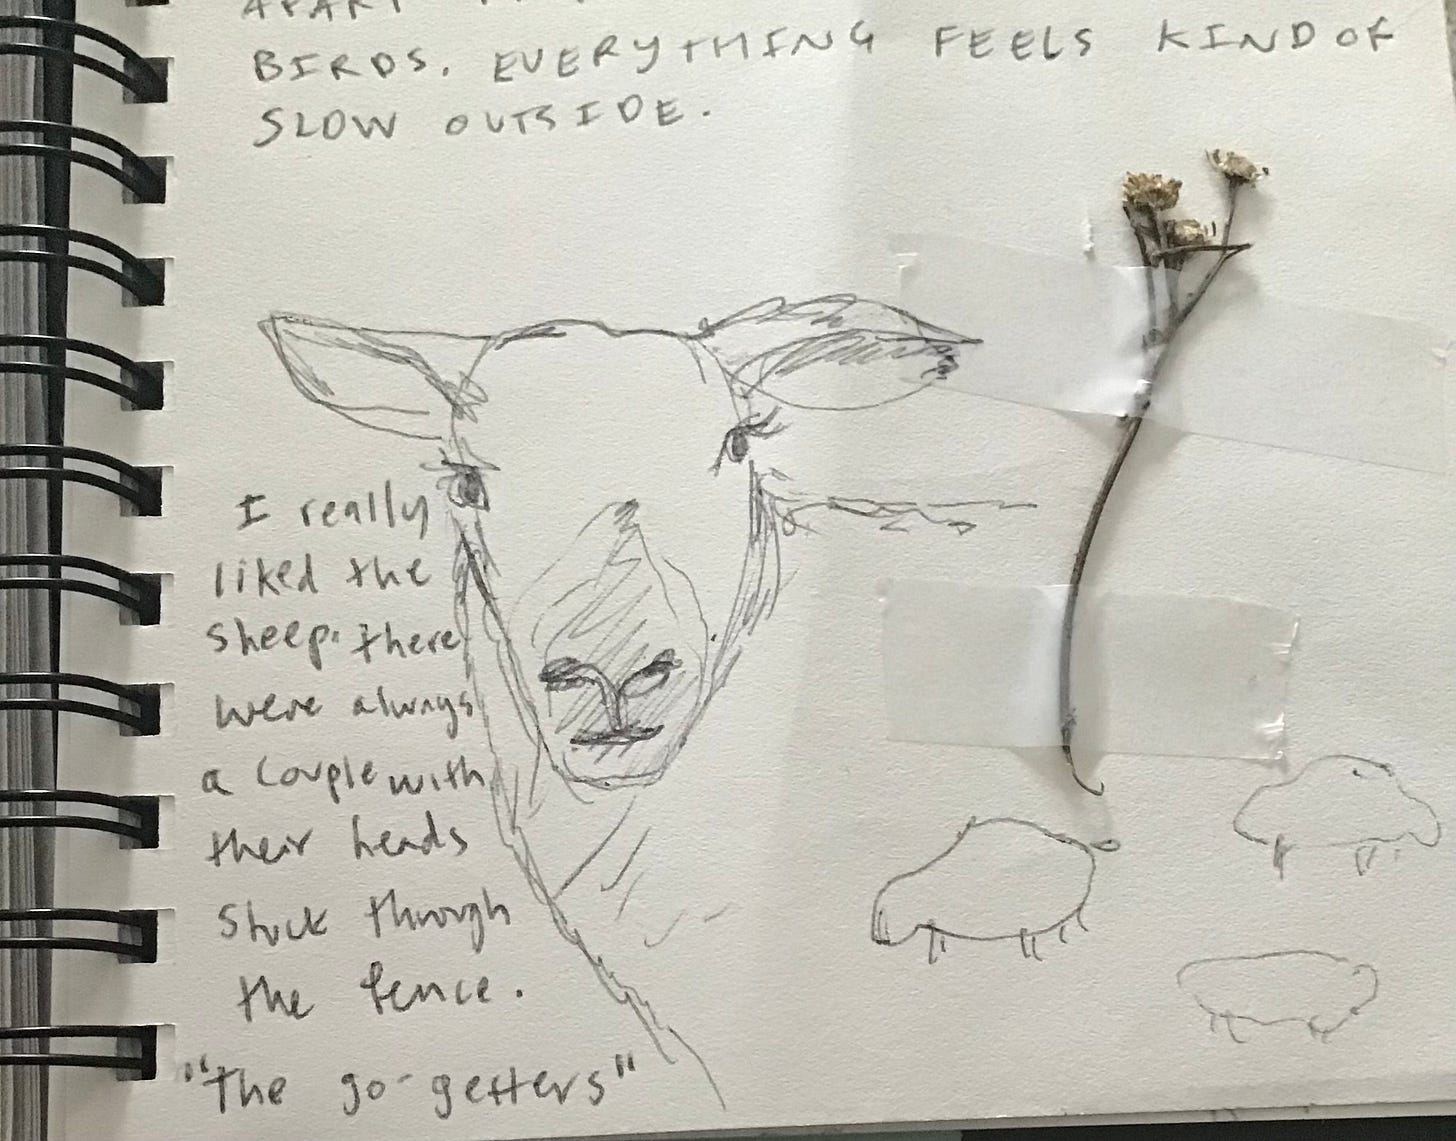 APART
BIRDS. EVERYTHING FEELS KIND OF
SLOW OUTSIDE.
I really
liked the
sheep. there
were always
a couple with
their heads
stuck through
the fence.
"the go-getters"